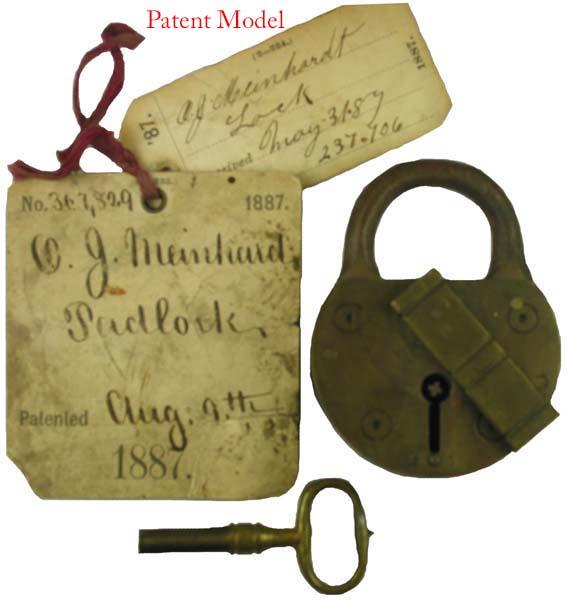 Patent Model
1887.
O. J. Meinhardt
Lock
May 31. 87
237.106
'87.
No. 367,829 1887.
O. J. Meinhard
Padlock
Patented Aug. 9th
1887.